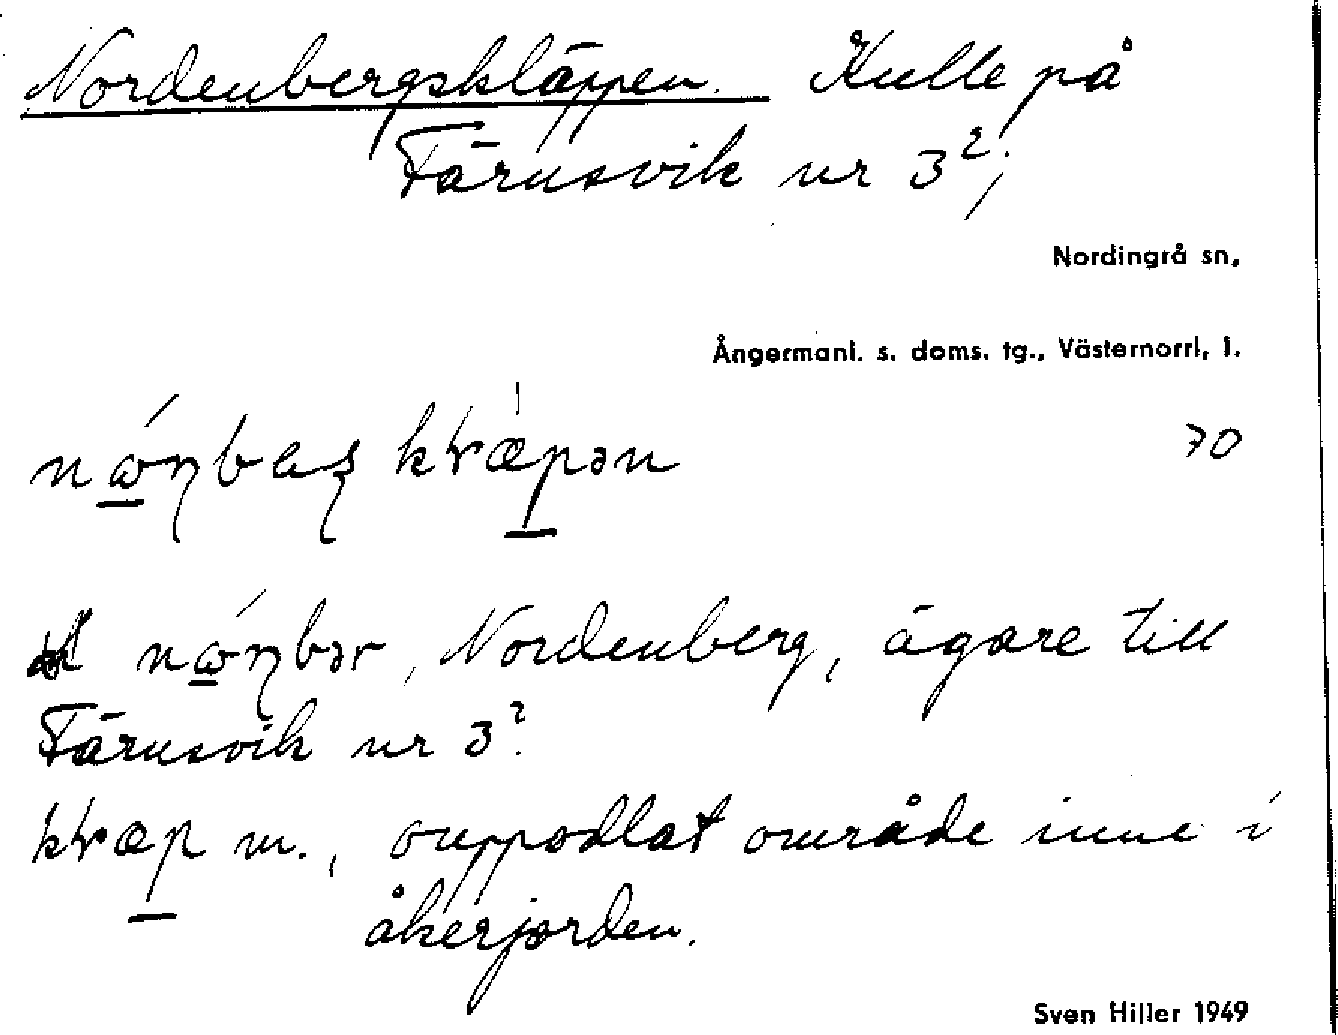 Nordenbergskläppen. Kulle på
Färusvik nr 3²;
Nordingrå sn,
Ångermanl. s. doms. tg., Västernorrl. l.
70
Nordenberg, ägare till
Färusvik nr 3².
m., ouppodlat område inne i
åkerjorden.
Sven Hiller 1949